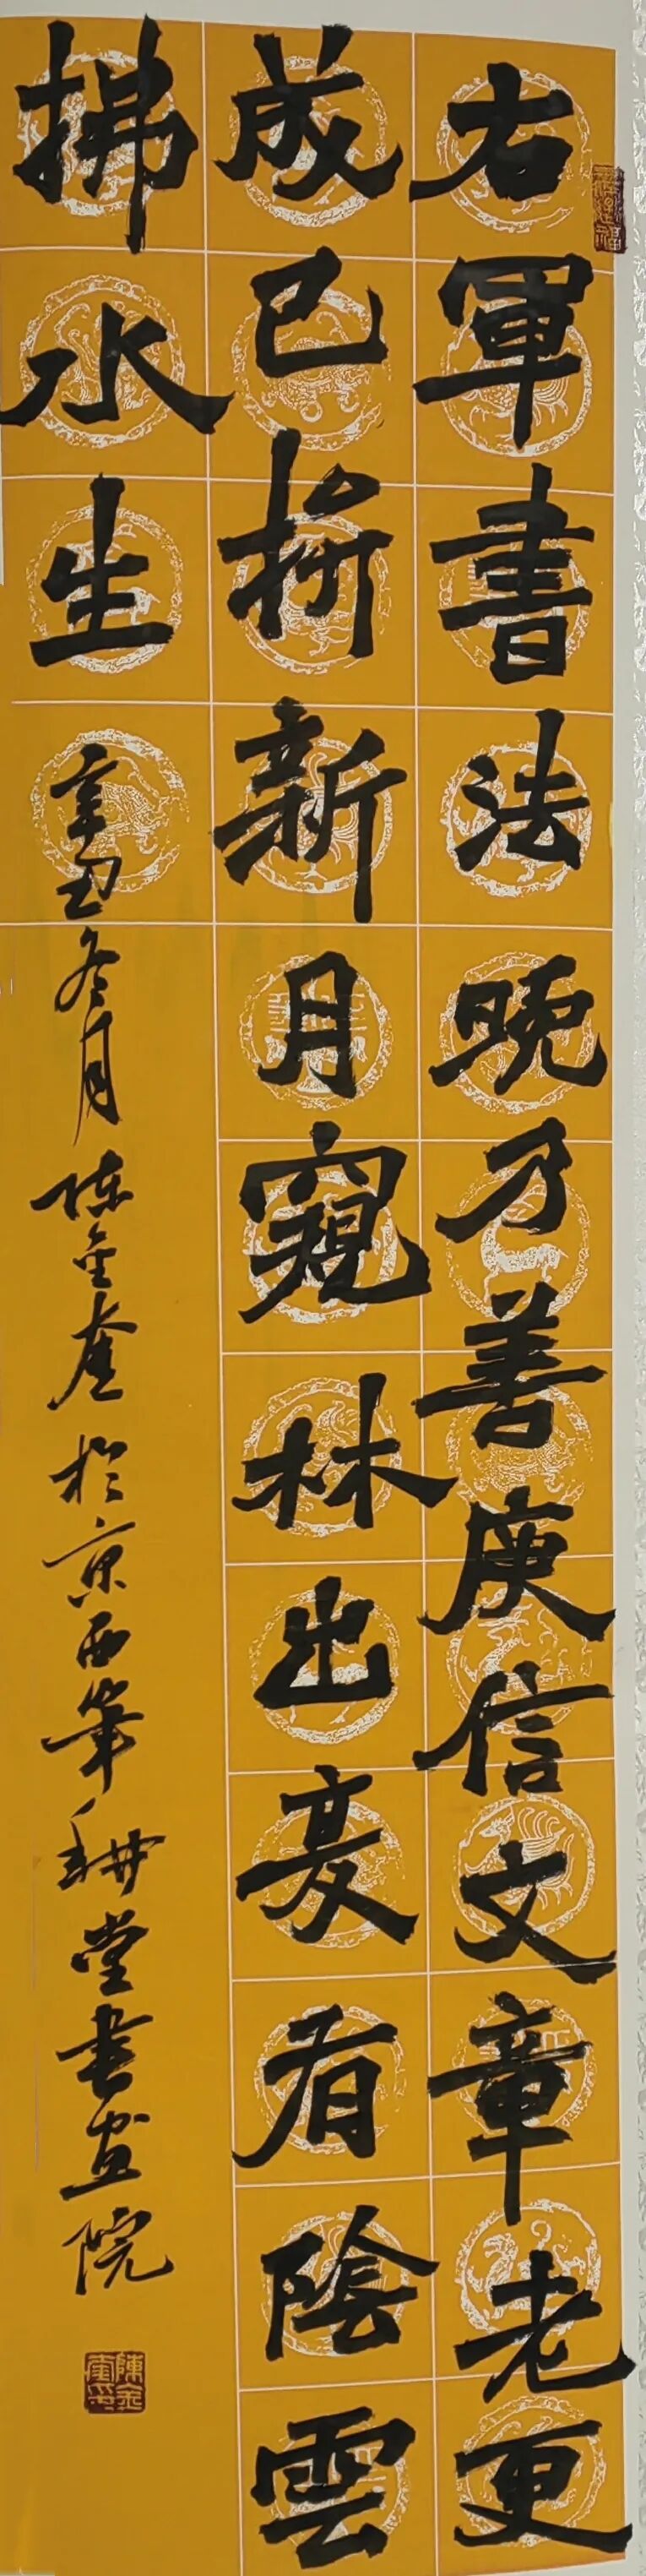 右軍書法晚乃善庾信文章老更
成已折新月窺林出夏看陰雲
拂水生
辛丑冬月陳金奎於京西筆耕堂書畫院
陳金奎印